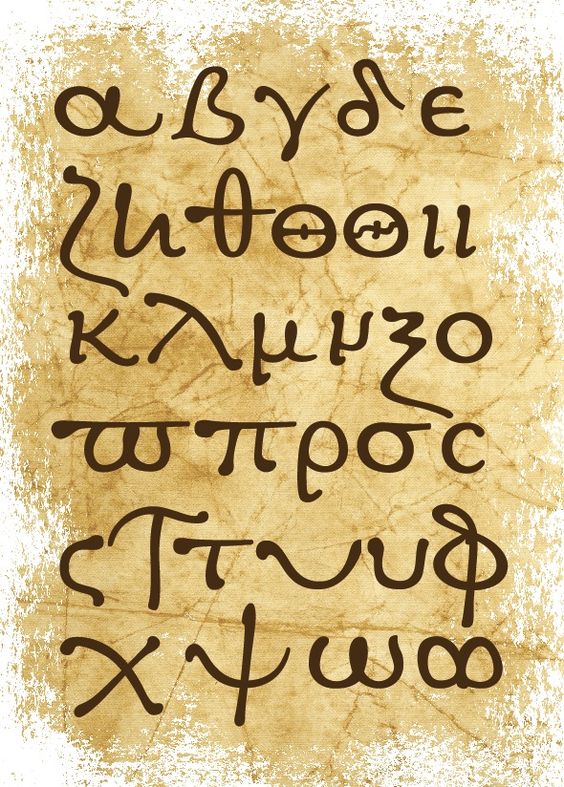 α β γ δ ε
ζ η θ θ θ ι ι
κ λ μ ν ξ ο
ϖ π ρ σ ϲ
ς τ τ υ υ φ
χ ψ ω ω